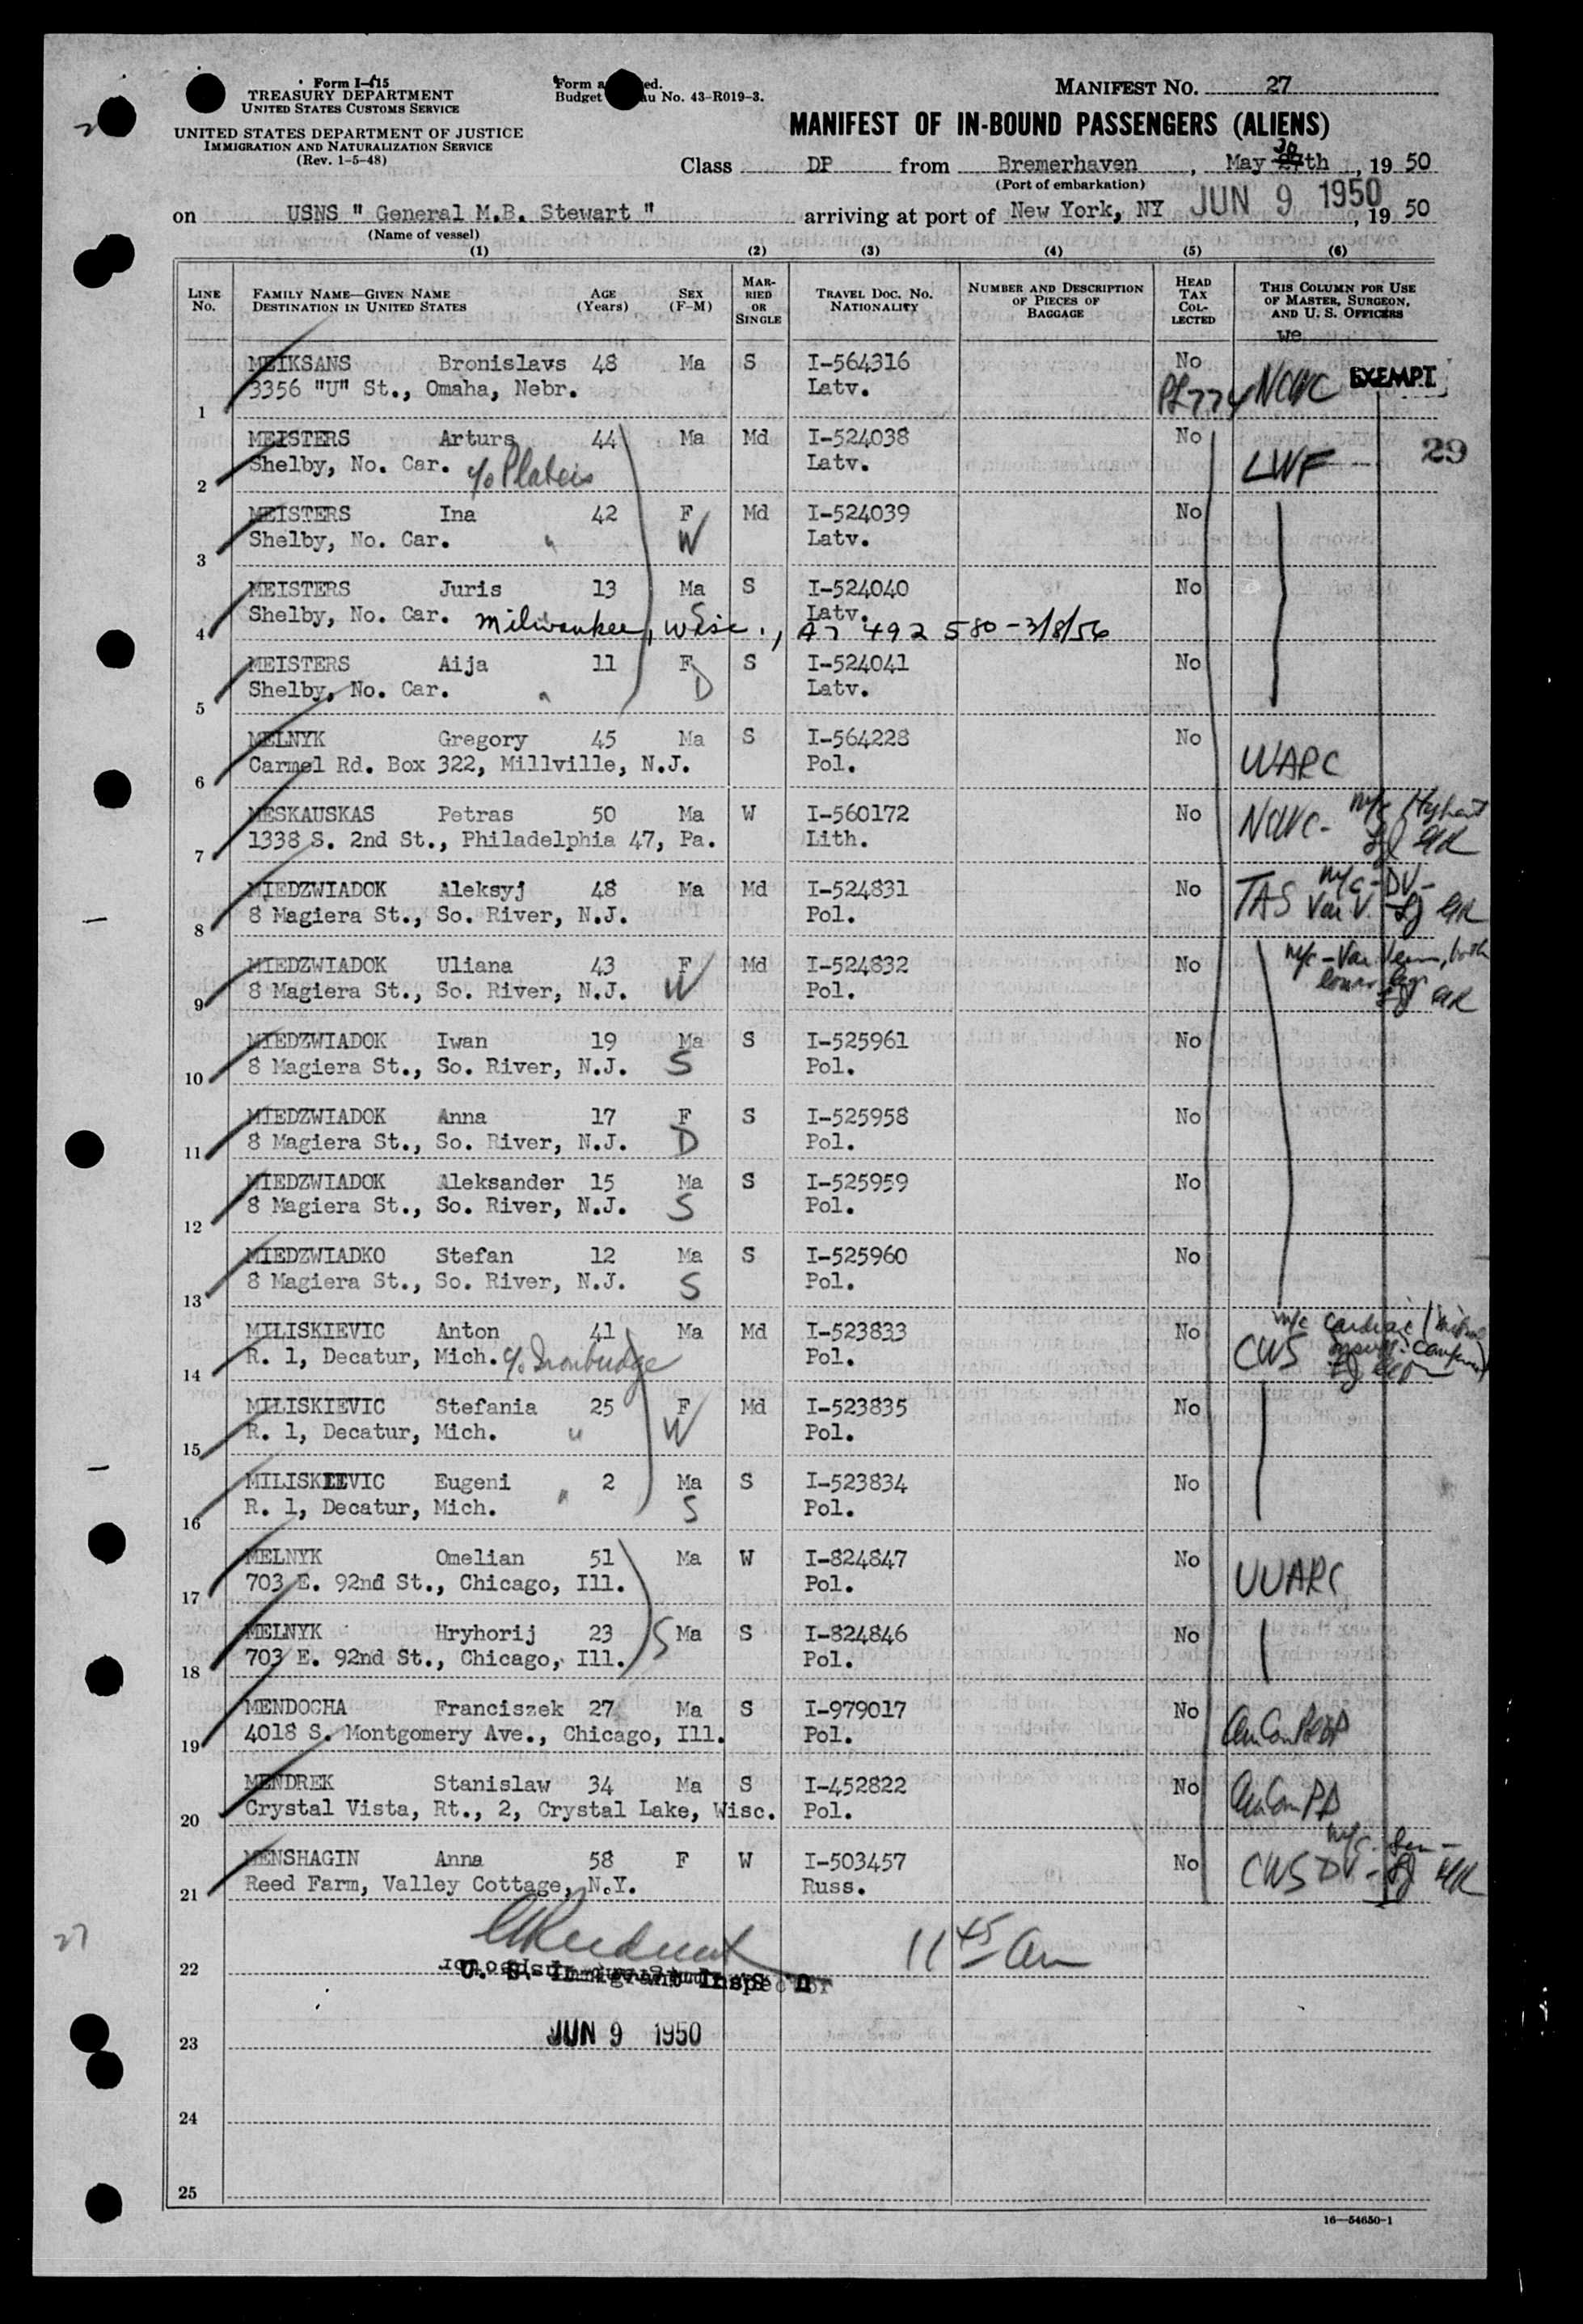 Form I-415
TREASURY DEPARTMENT
UNITED STATES CUSTOMS SERVICE
UNITED STATES DEPARTMENT OF JUSTICE
IMMIGRATION AND NATURALIZATION SERVICE
(Rev. 1-5-48)
Form a ed.
Budget au No. 43-R019-3.
MANIFEST NO. 27
MANIFEST OF IN-BOUND PASSENGERS (ALIENS)
Class DP from Bremerhaven, May 30 th, 19 50
(Port of embarkation)
on USNS " General M.B. Stewart " arriving at port of New York, NY JUN 9 1950, 19 50
(Name of vessel)
(1) (2) (3) (4) (5) (6)
LINE No. FAMILY NAME—GIVEN NAME DESTINATION IN UNITED STATES AGE (Years) SEX (F-M) MARRIED OR SINGLE TRAVEL DOC. NO. NATIONALITY NUMBER AND DESCRIPTION OF PIECES OF BAGGAGE HEAD TAX COLLECTED THIS COLUMN FOR USE OF MASTER, SURGEON, AND U. S. OFFICERS
we
MEIKSANS Bronislavs 48 Ma S I-564316 No
1 3356 "U" St., Omaha, Nebr. Latv. PL774 NCWC EXEMPT
MEISTERS Arturs 44 Ma Md I-524038 No 29
2 Shelby, No. Car. c/o Plateis Latv. LWF
MEISTERS Ina 42 F Md I-524039 No
3 Shelby, No. Car. " W Latv.
MEISTERS Juris 13 Ma S I-524040 No
4 Shelby, No. Car. S Latv.
Milwaukee, Wisc., A7 492 580-3/8/56
MEISTERS Aija 11 F S I-524041 No
5 Shelby, No. Car. " D Latv.
MELNYK Gregory 45 Ma S I-564228 No
6 Carmel Rd. Box 322, Millville, N.J. Pol. UUARC
MESKAUSKAS Petras 50 Ma W I-560172 No NCWC- m/c
7 1338 S. 2nd St., Philadelphia 47, Pa. Lith.
MIEDZWIADOK Aleksyj 48 Ma Md I-524831 No TAS m/c-DV-
8 8 Magiera St., So. River, N.J. Pol. Var V.
MIEDZWIADOK Uliana 43 F Md I-524832 No m/c-Var Vein, both
9 8 Magiera St., So. River, N.J. W Pol. lower legs
MIEDZWIADOK Iwan 19 Ma S I-525961 No
10 8 Magiera St., So. River, N.J. S Pol.
MIEDZWIADOK Anna 17 F S I-525958 No
11 8 Magiera St., So. River, N.J. D Pol.
MIEDZWIADOK Aleksander 15 Ma S I-525959 No
12 8 Magiera St., So. River, N.J. S Pol.
MIEDZWIADKO Stefan 12 Ma S I-525960 No
13 8 Magiera St., So. River, N.J. S Pol.
MILISKIEVIC Anton 41 Ma Md I-523833 No m/c cardiac
14 R. 1, Decatur, Mich. c/o Pol. CWS
MILISKIEVIC Stefania 25 F Md I-523835 No
15 R. 1, Decatur, Mich. " W Pol.
MILISKIEVIC Eugeni 2 Ma S I-523834 No
16 R. 1, Decatur, Mich. " S Pol.
MELNYK Omelian 51 Ma W I-824847 No
17 703 E. 92nd St., Chicago, Ill. Pol. UUARC
MELNYK Hryhorij 23 S Ma S I-824846 No
18 703 E. 92nd St., Chicago, Ill. Pol.
MENDOCHA Franciszek 27 Ma S I-979017 No
19 4018 S. Montgomery Ave., Chicago, Ill. Pol.
MENDREK Stanislaw 34 Ma S I-452822 No
20 Crystal Vista, Rt., 2, Crystal Lake, Wisc. Pol.
MENSHAGIN Anna 58 F W I-503457 No m/c
21 Reed Farm, Valley Cottage, N.Y. Russ. CWS DV-
27
22 11 45 am
U. S. Immigrant Inspector
23 JUN 9 1950
24
25
16—54650-1